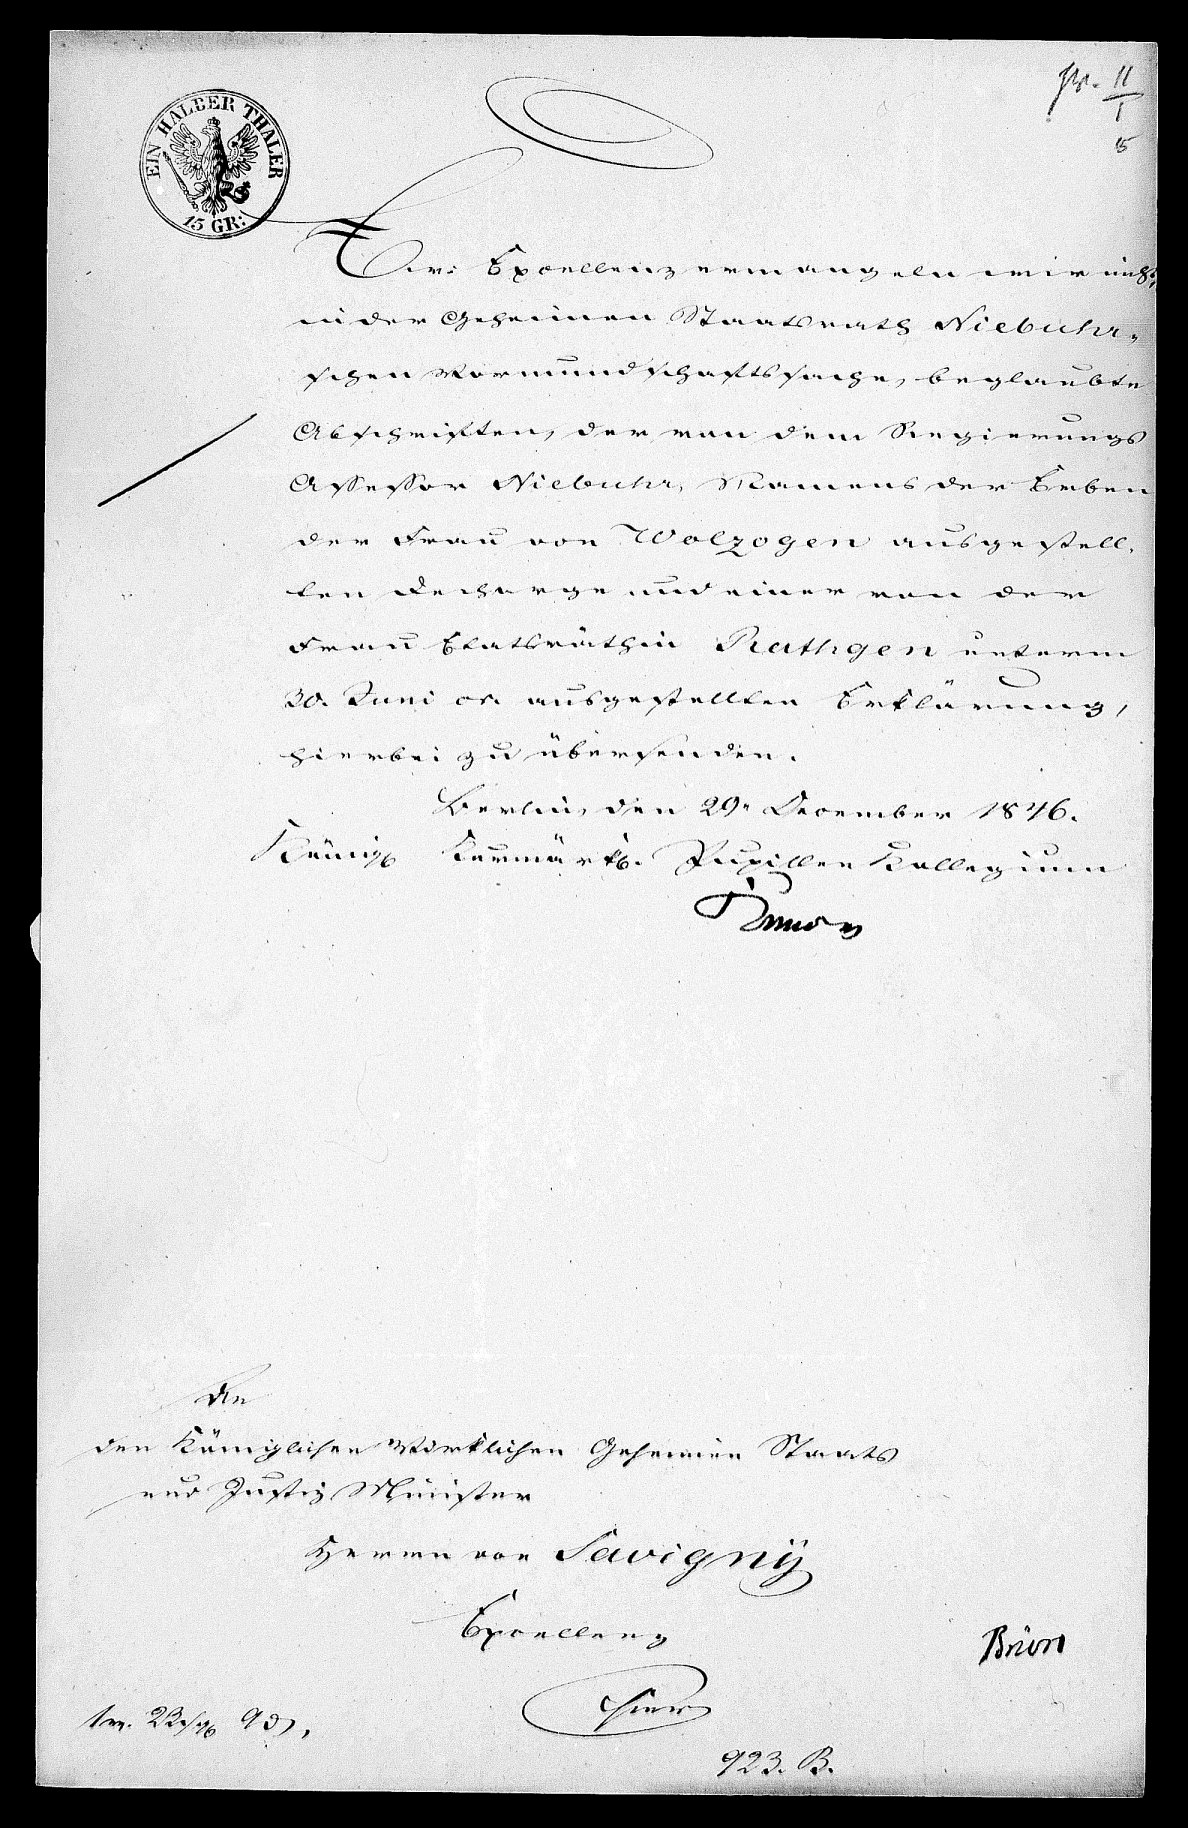 EIN HALBER THALER
15 GR:
11
1
15
Ew: Excellenz ermangeln wir nicht,
in der Geheimen Staatsrath Niebuhr-
schen Vormundschaftssache, beglaubte
Abschriften, der von dem Regierungs
Assessor Niebuhr, Namens der Erben
der Frau von Wolzogen ausgestell-
ten Decharge und einer von der
Frau Etatsräthin Rathgen unterm
30. Juni cr. ausgestellten Erklärung,
hierbei zu übersenden.
Berlin, den 29. December 1846.
Königl. Kurmärk. Pupillen Kollegium
An
den Königlichen Wirklichen Geheimen Staats
und Justiz Minister
Herrn von Savigny
Excellenz
Hier
923. B.